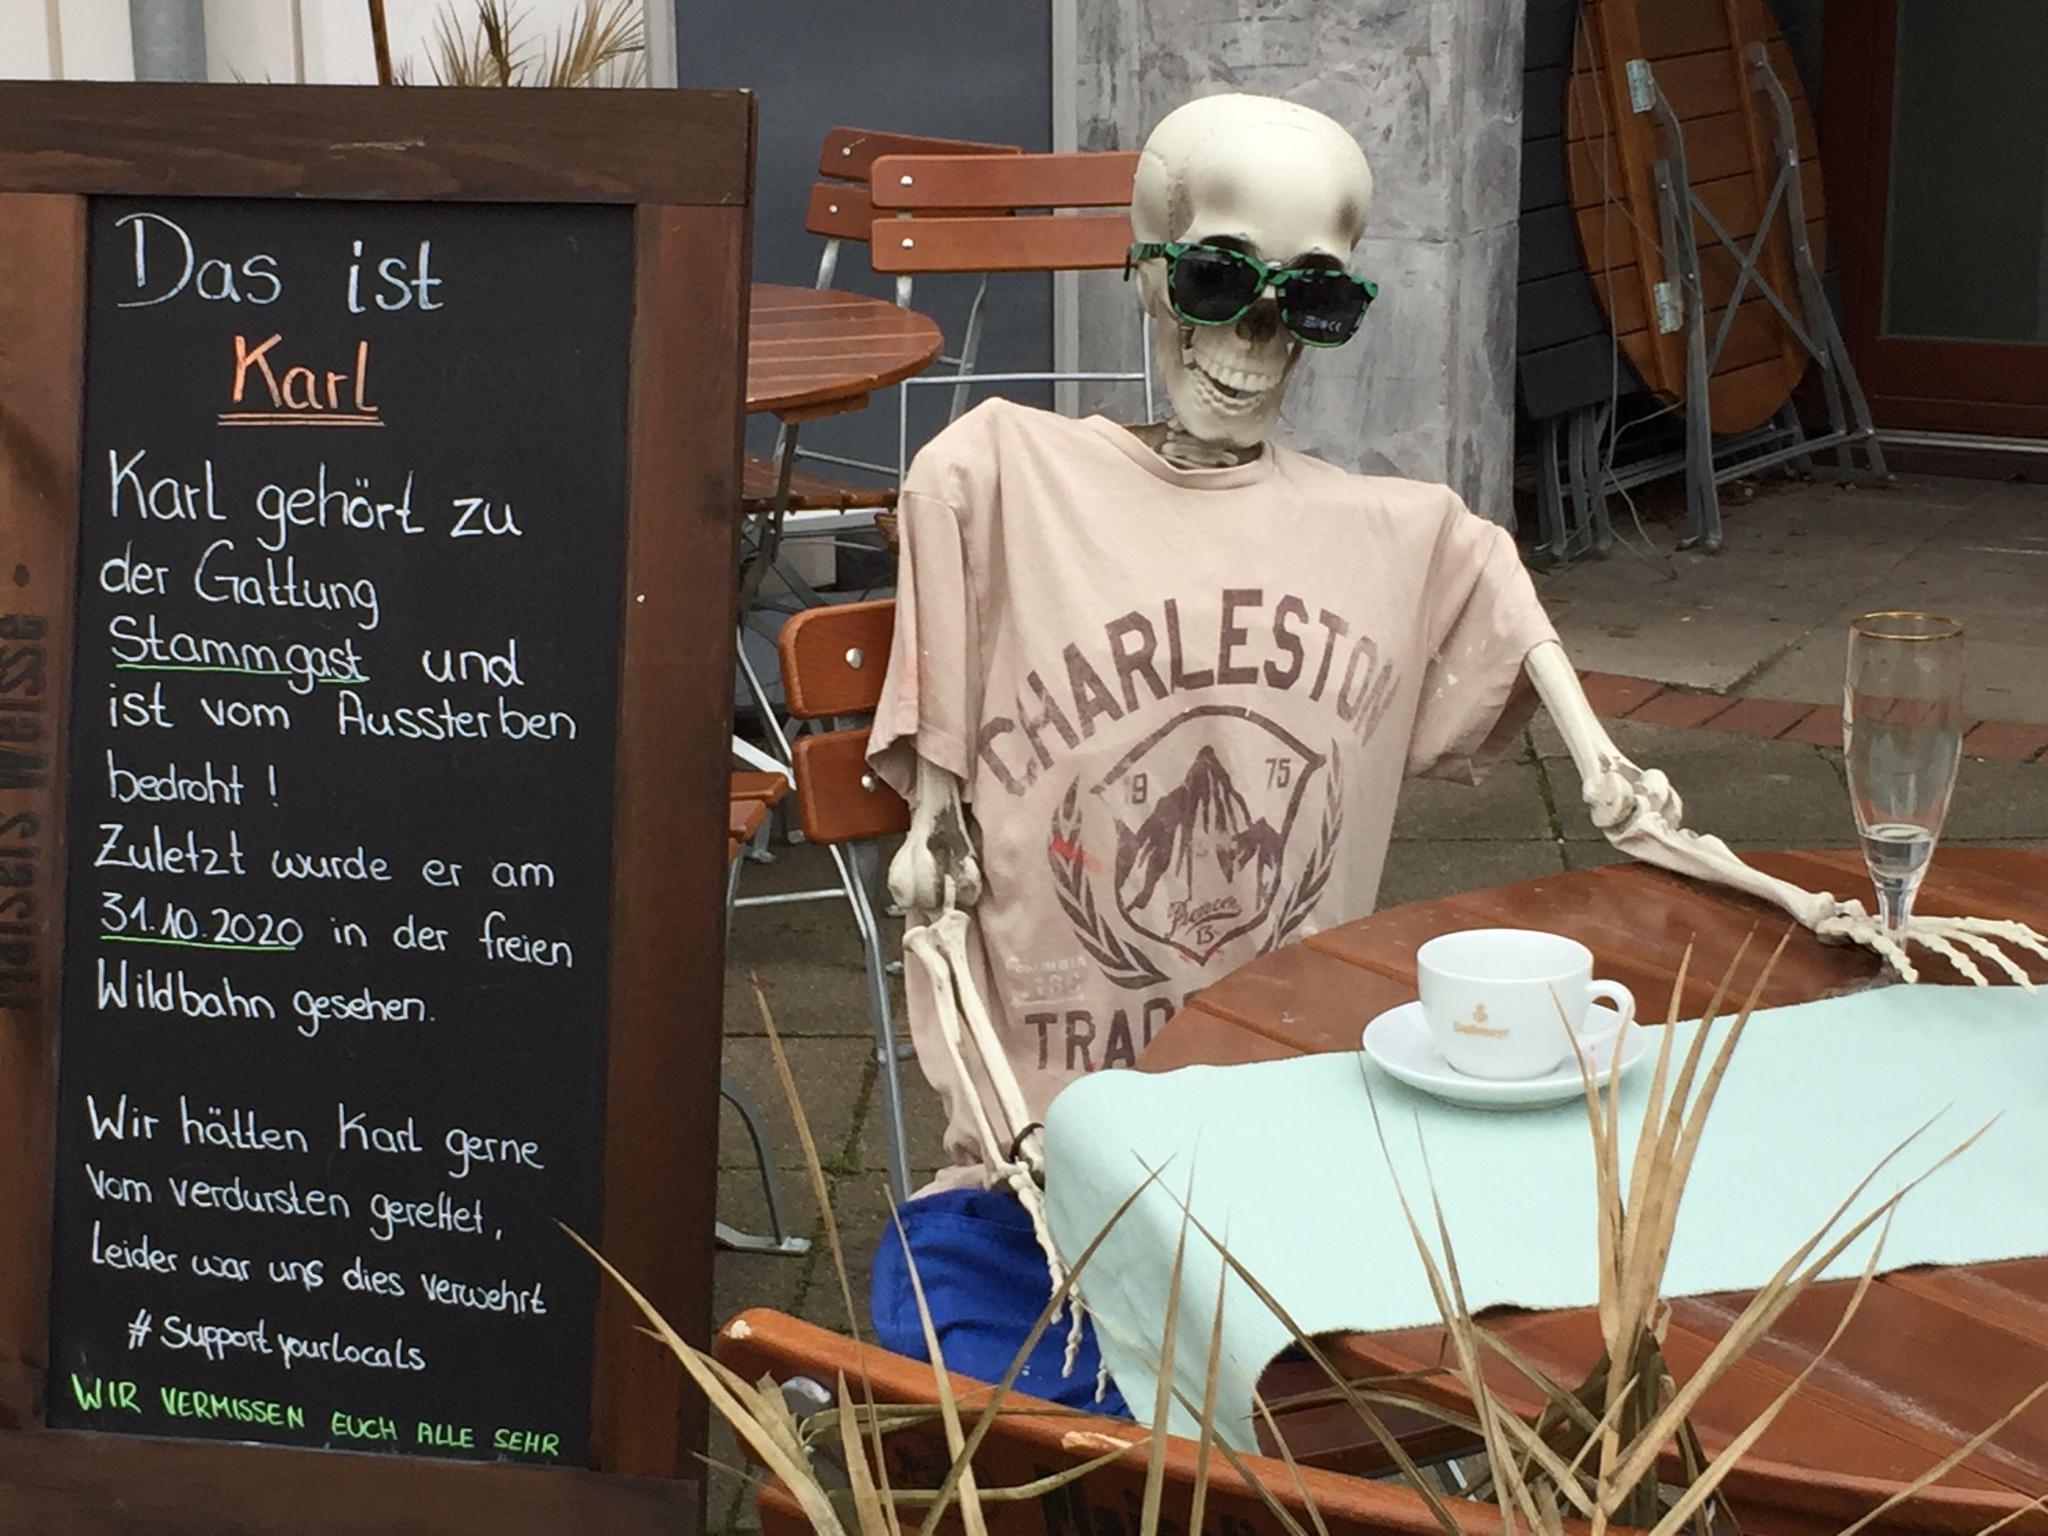 Das ist
Karl
Karl gehört zu
der Gattung
Stammgast und
ist vom Aussterben
bedroht !
Zuletzt wurde er am
31.10.2020 in der freien
Wildbahn gesehen.
Wir hätten Karl gerne
vom verdursten gerettet,
Leider war uns dies verwehrt
# Supportyourlocals
WIR VERMISSEN EUCH ALLE SEHR
Maisers Weisse
CHARLESTON
19 75
13
TRAD